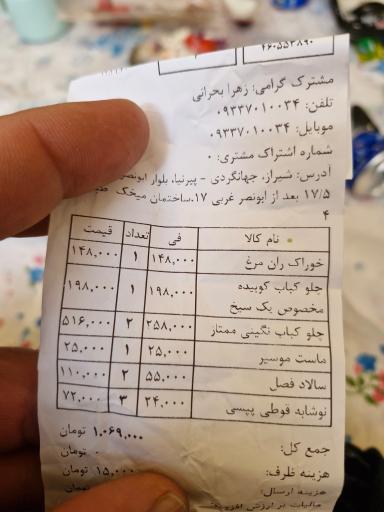 ۲۶۰۵۵۲۸۹۰
مشترک گرامی: زهرا بحرانی
تلفن: ۰۹۳۳۷۰۱۰۰۳۴
موبایل: ۰۹۳۳۷۰۱۰۰۳۴
شماره اشتراک مشتری: ۰
آدرس: شیراز، جهانگردی - پیرنیا، بلوار ابونصر
۱۷/۵ بعد از ابونصر غربی ۱۷،ساختمان میخک
۴
نام کالا فی تعداد قیمت
خوراک ران مرغ ۱۴۸,۰۰۰ ۱ ۱۴۸,۰۰۰
چلو کباب کوبیده مخصوص یک سیخ ۱۹۸,۰۰۰ ۱ ۱۹۸,۰۰۰
چلو کباب نگینی ممتاز ۲۵۸,۰۰۰ ۲ ۵۱۶,۰۰۰
ماست موسیر ۲۵,۰۰۰ ۱ ۲۵,۰۰۰
سالاد فصل ۵۵,۰۰۰ ۲ ۱۱۰,۰۰۰
نوشابه قوطی پپسی ۲۴,۰۰۰ ۳ ۷۲,۰۰۰
جمع کل: ۱,۰۶۹,۰۰۰ تومان
هزینه ظرف: ۰ تومان
هزینه ارسال: ۱۵,۰۰۰ تومان
مالیات بر ارزش افزوده: تومان